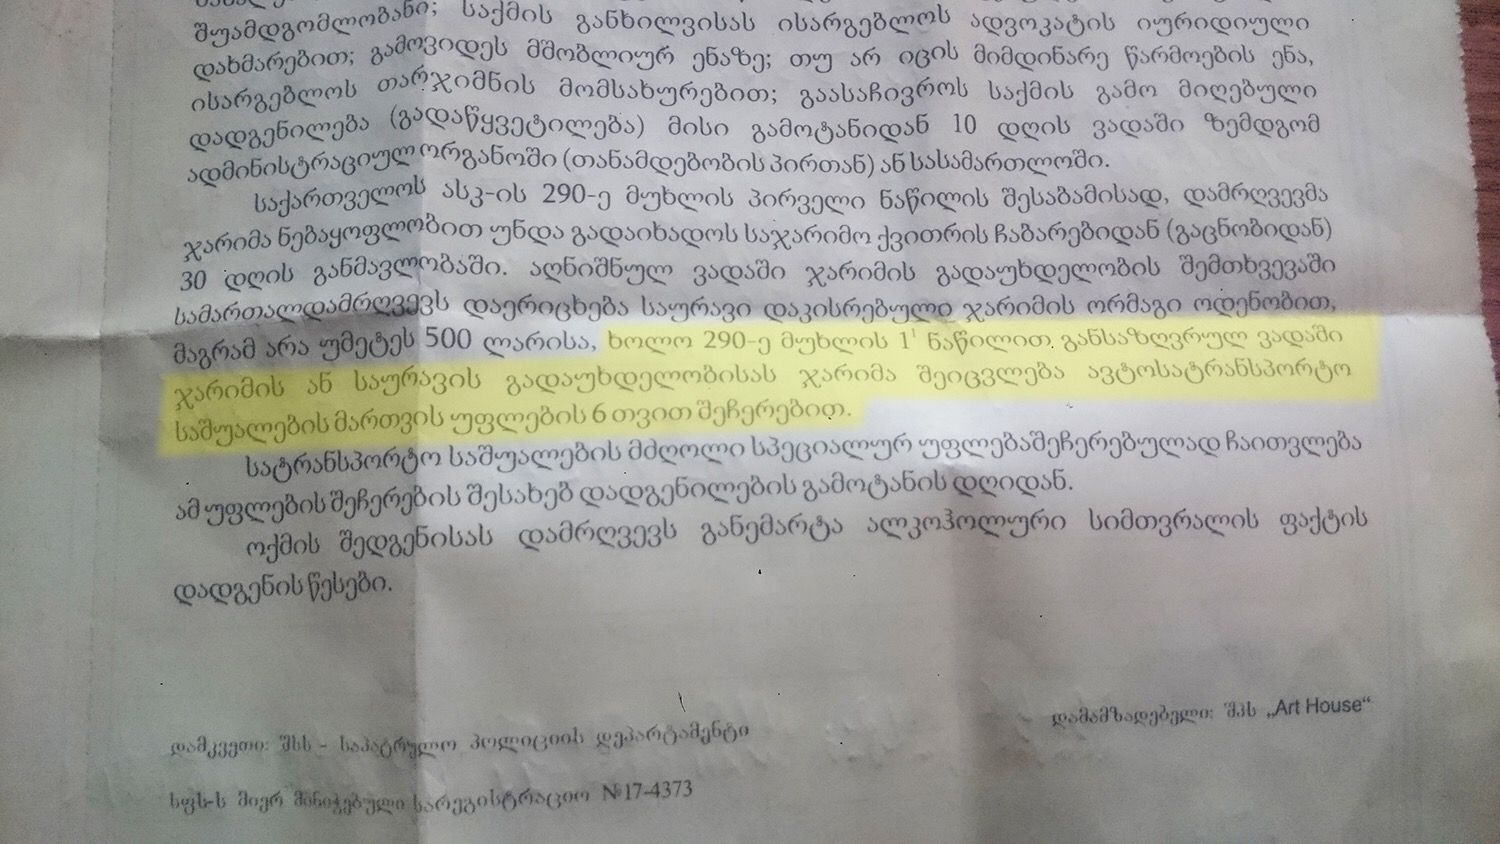 შუამდგომლობანი; საქმის განხილვისას ისარგებლოს ადვოკატის იურიდიული
დახმარებით; გამოვიდეს მშობლიურ ენაზე; თუ არ იცის მიმდინარე წარმოების ენა,
ისარგებლოს თარჯიმნის მომსახურებით; გაასაჩივროს საქმის გამო მიღებული
დადგენილება (გადაწყვეტილება) მისი გამოტანიდან 10 დღის ვადაში ზემდგომ
ადმინისტრაციულ ორგანოში (თანამდებობის პირთან) ან სასამართლოში.
საქართველოს ასკ-ის 290-ე მუხლის პირველი ნაწილის შესაბამისად, დამრღვევმა
ჯარიმა ნებაყოფლობით უნდა გადაიხადოს საჯარიმო ქვითრის ჩაბარებიდან (გაცნობიდან)
30 დღის განმავლობაში. აღნიშნულ ვადაში ჯარიმის გადაუხდელობის შემთხვევაში
სამართალდამრღვევს დაერიცხება საურავი დაკისრებული ჯარიმის ორმაგი ოდენობით,
მაგრამ არა უმეტეს 500 ლარისა, ხოლო 290-ე მუხლის 1¹ ნაწილით განსაზღვრულ ვადაში
ჯარიმის ან საურავის გადაუხდელობისას ჯარიმა შეიცვლება ავტოსატრანსპორტო
საშუალების მართვის უფლების 6 თვით შეჩერებით.
სატრანსპორტო საშუალების მძღოლი სპეციალურ უფლებაშეჩერებულად ჩაითვლება
ამ უფლების შეჩერების შესახებ დადგენილების გამოტანის დღიდან.
ოქმის შედგენისას დამრღვევს განემარტა ალკოჰოლური სიმთვრალის ფაქტის
დადგენის წესები.
დამამზადებელი: შპს „Art House“
დამკვეთი: შსს - საპატრულო პოლიციის დეპარტამენტი
სფს-ს მიერ მინიჭებული სარეგისტრაციო №17-4373